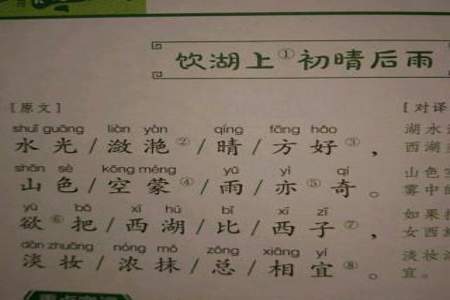 饮湖上①初晴后雨
[原文]
shuǐ guāng liàn yàn qíng fāng hǎo
水光/潋滟②/晴/方好③，
shān sè kōng méng yǔ yì qí
山色/空蒙④/雨/亦⑤奇。
yù bǎ xī hú bǐ xī zǐ
欲⑥把/西湖/比/西子⑦，
dàn zhuāng nóng mǒ zǒng xiāng yí
淡妆/浓抹/总/相宜⑧。
[对译
湖水
西湖
山色
雾中的
如果把
女西
淡妆
宜。